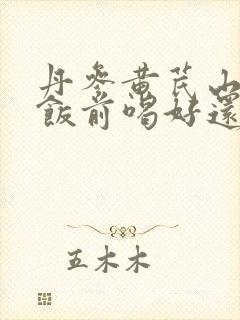 丹参黄芪山
飯前喝好還
五木木